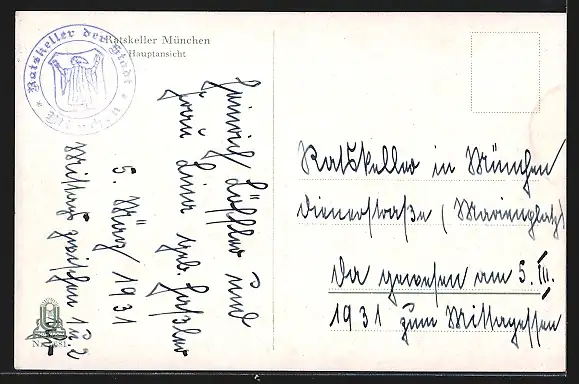 Ratskeller München
Hauptansicht
Ratskeller der Stadt
München
Heinrich Löffler und
Frau Lina geb. Häfsler
5. März 1931
Mittags zwischen 1 u. 2
Ratskeller in München
Dienerstraße (Marienplatz)
Da gewesen am 5. III.
1931 zum Mittagessen